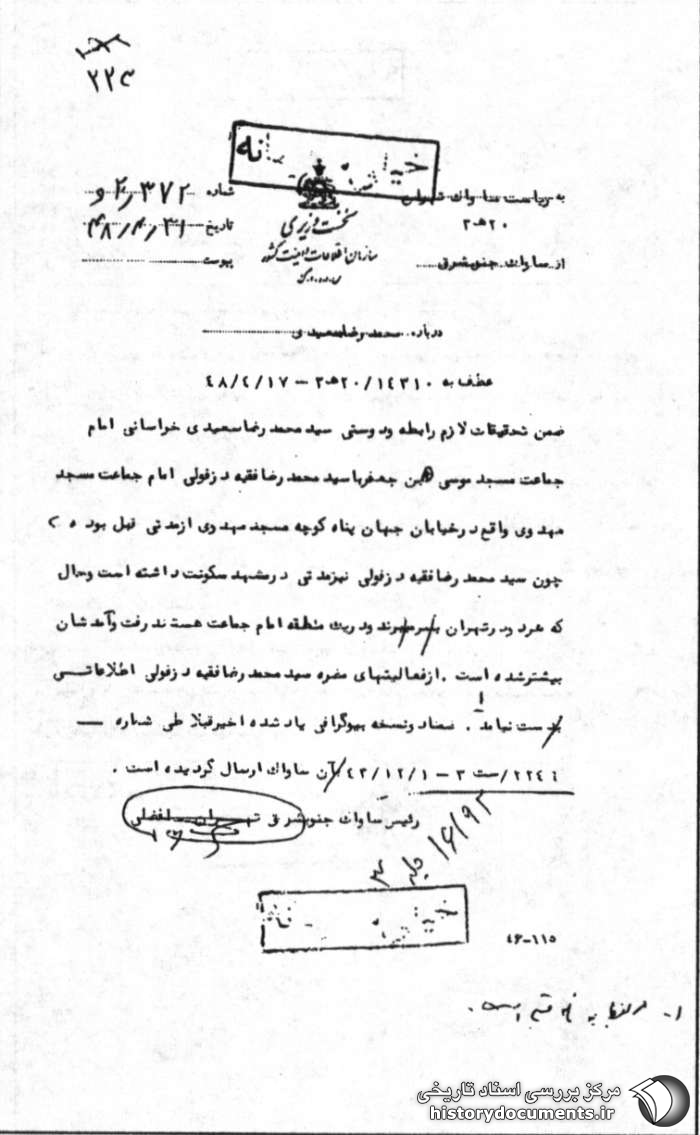 ۲۲۳
خیلی محرمانه
به ریاست ساواک تهران
۲۰هـ۳
از ساواک جنوبشرق
نخست وزیری
سازمان اطلاعات و امنیت کشور
س.ا.و.ا.ک
شماره ۲٫۳۷۲و
تاریخ ۴۸٫۴٫۳۱
پیوست
درباره محمد رضا سعیدی
عطف به ۲۰/۱٤۳۱۰هـ۳ – ٤۸/٤/۱۷
ضمن تحقیقات لازم رابطه ودوستی سید محمد رضا سعیدی خراسانی امام
جماعت مسجد موسی ابن جعفر با سید محمد رضا فقیه دزفولی امام جماعت مسجد
مهدوی واقع در خیابان جهان پناه کوچه مسجد مهدوی از مدتی قبل بوده و
چون سید محمد رضا فقیه دزفولی نیز مدتی در مشهد سکونت داشته است وحال
که هردو در تهران بسر میبرند و در یک منطقه امام جماعت هستند رفت وآمدشان
بیشتر شده است . از فعالیتهای مضره سید محمد رضا فقیه دزفولی اطلاعاتی
بدست نیامد . ضمناً دونسخه بیوگرافی یاد شده اخیر قبلا طی شماره —
۲۲٤٤/ست ۳ – ٤۳/۱۲/۱ بآن ساواک ارسال گردیده است .
رئیس ساواک جنوبشرق تهران – افضلی
۱۶/۹۲
خیلی محرمانه
٤۶-۱۱۵
۱-
مرکز بررسی اسناد تاریخی
historydocuments.ir